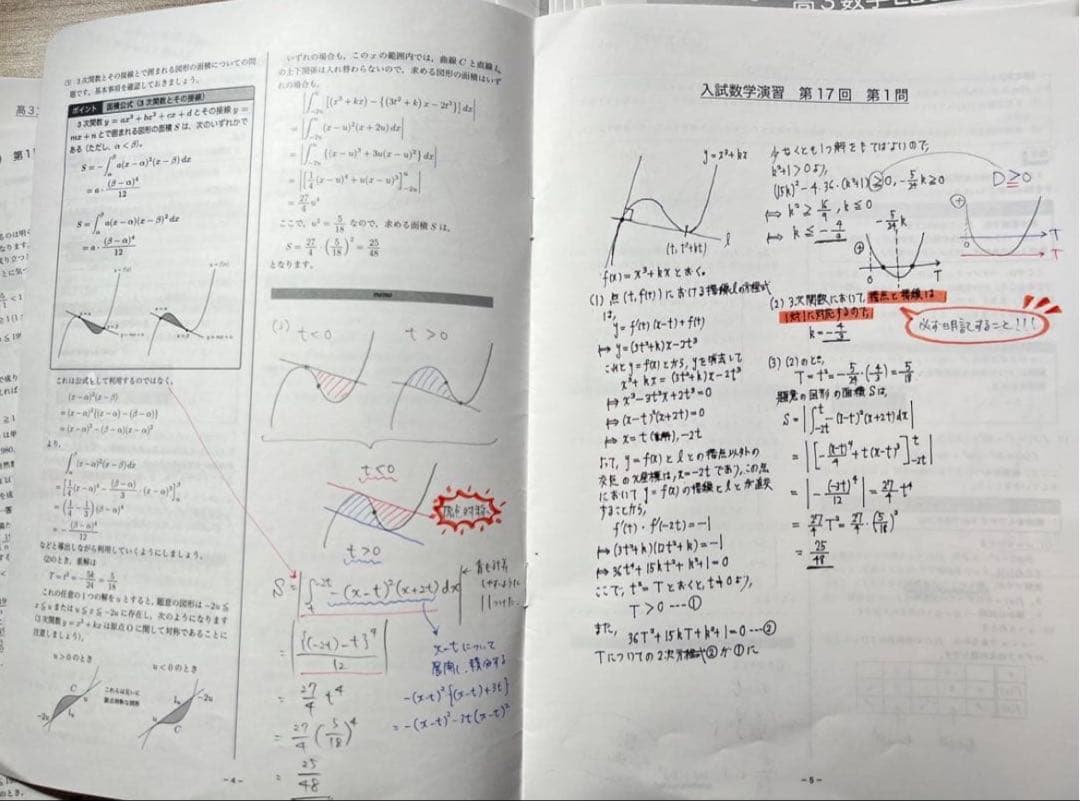 (3) 3次関数とその接線とで囲まれる図形の面積についての問
題です。基本事項を確認しておきましょう。
ポイント 面積公式(3次関数とその接線)
3次関数 y=ax³+bx²+cx+d とその接線 y=
mx+n とで囲まれる図形の面積 S は、次のいずれかで
ある(ただし、α<β)。
S=-∫_α^β a(x-α)²(x-β)dx
=a・(β-α)⁴/12
S=∫_α^β a(x-α)(x-β)²dx
=a・(β-α)⁴/12
これは公式として利用するのではなく、
(x-α)²(x-β)
=(x-α)²{(x-α)-(β-α)}
=(x-α)³-(β-α)(x-α)²
より、
∫_α^β (x-α)²(x-β)dx
=[1/4(x-α)⁴-(β-α)/3・(x-α)³]_α^β
=(1/4-1/3)(β-α)⁴
=-(β-α)⁴/12
などと導出しながら利用していくようにしましょう。
(2)のとき、重解は
T=t²=-5k/24=5/18
この任意の1つの解を u とすると、題意の図形は -2u≦
x≦u または u≦x≦-2u に存在し、次のようになります
(3次関数 y=x³+kx は原点 O に関して対称であることに
注意しましょう)。
u>0のとき
u<0のとき
これらは互いに
原点対称な図形
-4-
いずれの場合も、この x の範囲内では、曲線 C と直線 l
の上下関係は入れ替わらないので、求める図形の面積はいず
れの場合も、
|∫_{-2u}^u [(x³+kx)-{(3t²+k)x-2t³}]dx|
=|∫_{-2u}^u (x-u)²(x+2u)dx|
=|∫_{-2u}^u {(x-u)³+3u(x-u)²}dx|
=|[1/4(x-u)⁴+u(x-u)³]_{-2u}^u|
=27/4 u⁴
ここで、u²=5/18 なので、求める面積 S は、
S=27/4・(5/18)²=25/48
となります。
memo
(3)
t<0
t>0
t≦0
原点対称
t>0
S=|∫_t^{-2t} -(x-t)²(x+2t)dx|
|{(-2t)-t}⁴/12|
=27/4 t⁴
=27/4(5/18)⁴
=25/48
x-tについて
展開し、積分する
-(x-t)²{(x-t)+3t}
=-(x-t)³-3t(x-t)²
入試数学演習 第17回 第1問
y=x³+kx
(t, t³+kt)
l
f(x)=x³+kxとおく。
(1) 点(t,f(t))における接線lの方程式
は、
y=f'(t)(x-t)+f(t)
⇔ y=(3t²+k)x-2t³
これとy=f(x)とから、yを消去して
x³+kx=(3t²+k)x-2t³
⇔ x³-3t²x+2t³=0
⇔ (x-t)²(x+2t)=0
⇔ x=t(重解),-2t
よって、y=f(x)とlとの接点以外の
交点のx座標は、x=-2tであり、この点
において y=f(x)の接線とlとが直交
することから、
f'(t)・f'(-2t)=-1
⇔ (3t²+k)(12t²+k)=-1
⇔ 36t⁴+15kt²+k²+1=0
ここで、t²=Tとおくと、t≠0より、
T>0 ---①
また、
36T²+15kT+k²+1=0 ---②
Tについての2次方程式②が①に
少なくとも1つ解をもてばよいので、
k²+1>0より、
(15k)²-4・36・(k²+1)≧0, -5/24k≧0
⇔ k²≧16/9, k≦0
⇔ k≦-4/3
-5/24k
D≧0
T
(2) 3次関数において、接点と接線は
1対1に対応するので、
k=-4/3
必ず暗記すること!!!
(3) (2)のとき、
T=t²=-5/24・(-4/3)=5/18
題意の図形の面積Sは、
S=|∫_{-2t}^t -(x-t)²(x+2t)dx|
=|[-(x-t)⁴/4+t(x-t)³]_{-2t}^t|
=|-(-3t)⁴/12|=27/4 t⁴
=27/4 T²=27/4・(5/18)²
=25/48
-5-